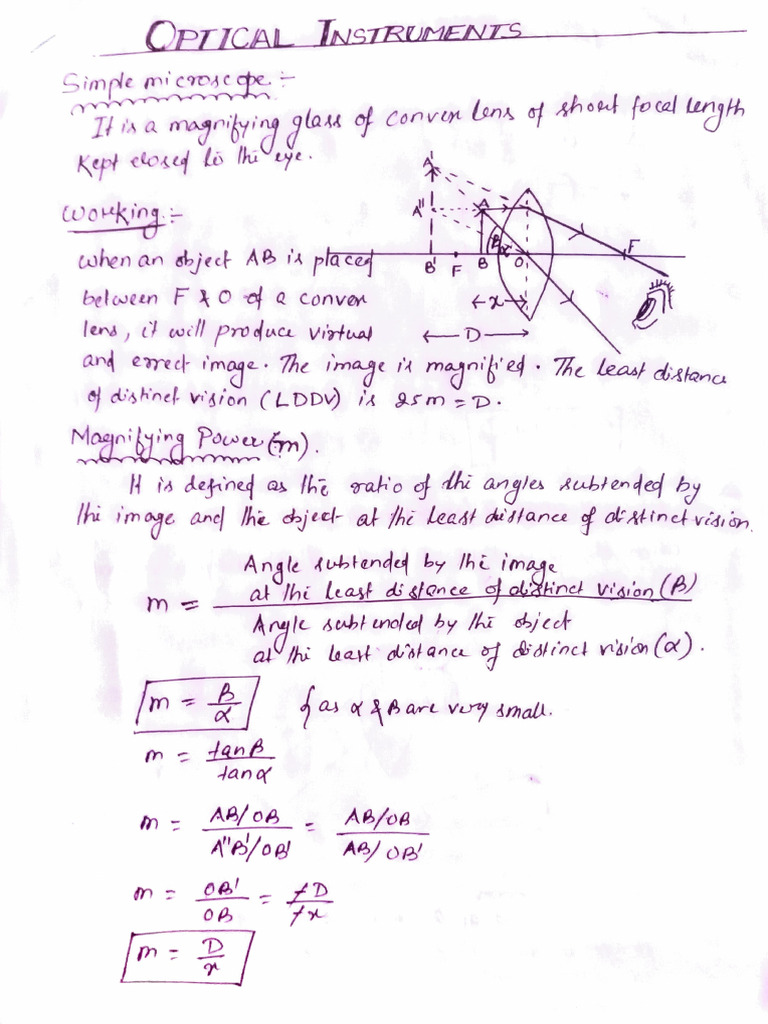 OPTICAL INSTRUMENTS
Simple microscope :-
It is a magnifying glass of convex lens of short focal length
kept closed to the eye.
Working :-
A'
A"
A
B
α
B'
F
B
O
F
x
D
when an object AB is placed
between F & O of a convex
lens, it will produce virtual
and errect image. The image is magnified. The least distance
of distinct vision (LDDV) is 25m = D.
Magnifying Power (m).
It is defined as the ratio of the angles subtended by
the image and the object at the least distance of distinct vision.
Angle subtended by the image
at the least distance of distinct vision (β)
m =
Angle subtended by the object
at the least distance of distinct vision (α).
m = β/α { as α & β are very small.
m = tanβ/tanα
m = AB/OB / A"B'/OB' = AB/OB / AB/OB'
m = OB'/OB = +D/+x
m = D/x